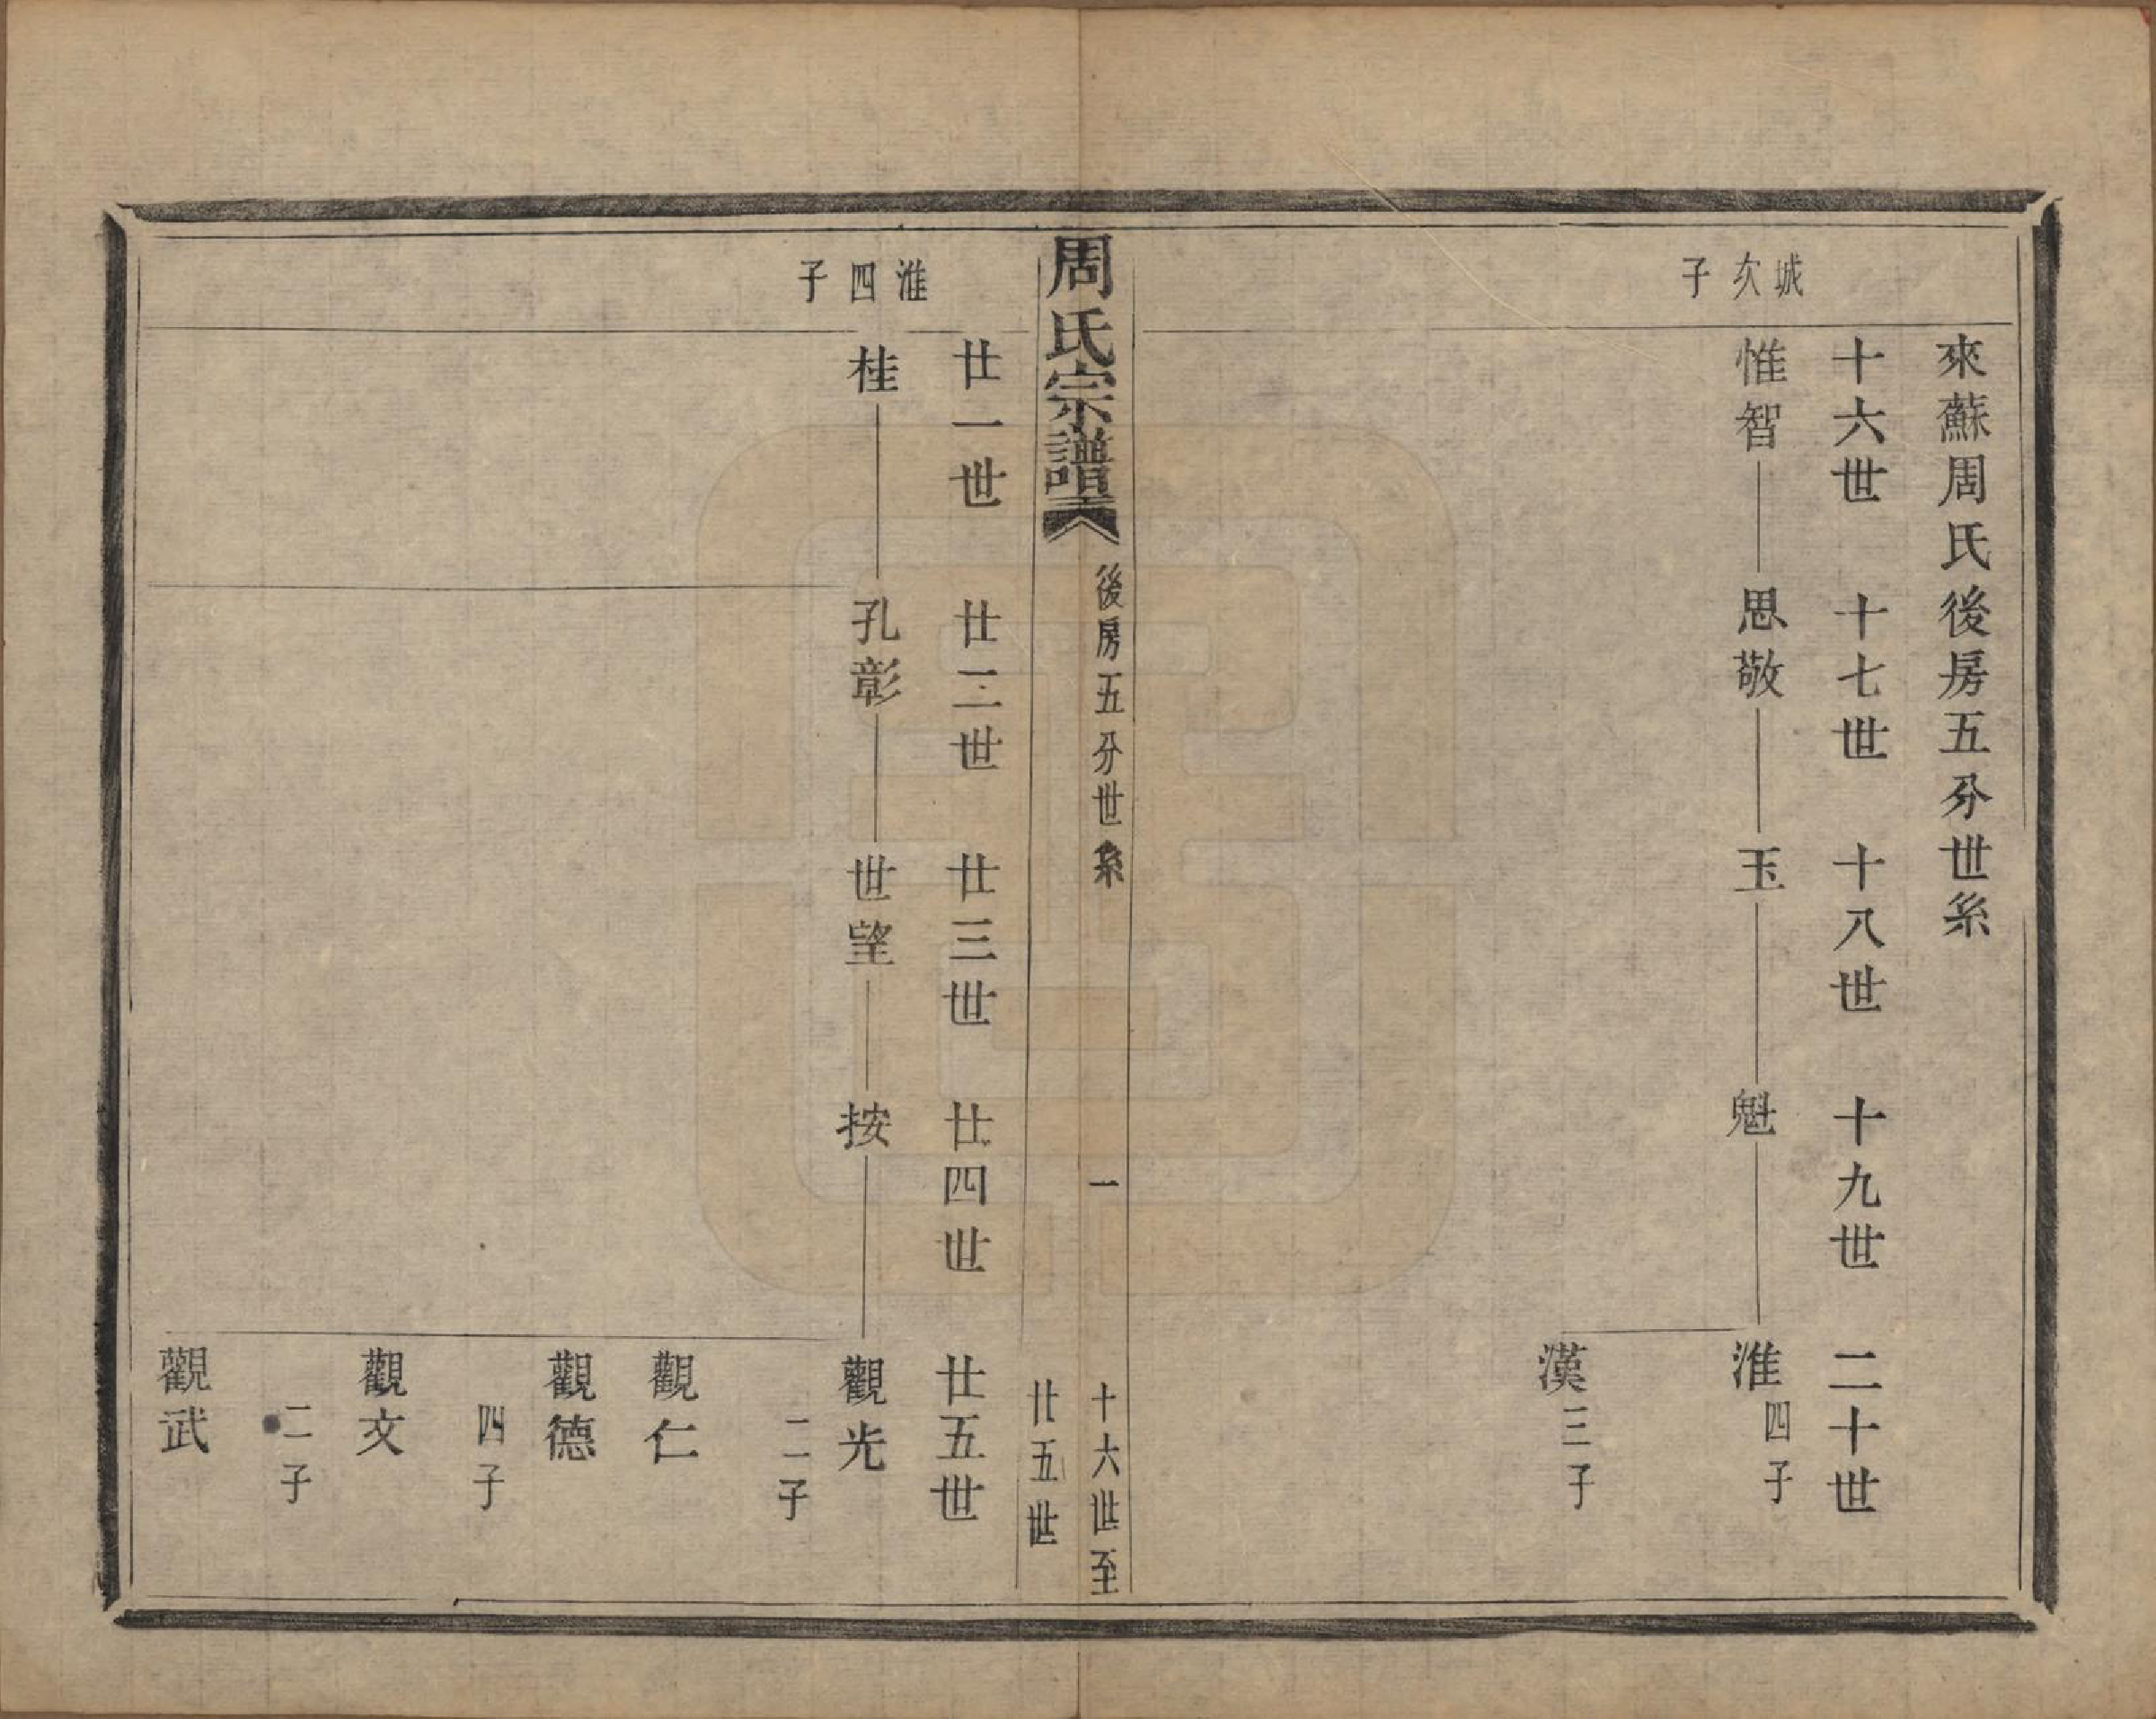 來蘇周氏後房五分世系
十六世　十七世　十八世　十九世　二十世
城次子
惟智　思敬　玉　魁　淮四子
漢三子
周氏宗譜
後房五分世系　一　十六世至
廿五世
廿一世　廿二世　廿三世　廿四世　廿五世
淮四子
桂　孔彰　世望　按　觀光
二子
觀仁
觀德
四子
觀文
二子
觀武